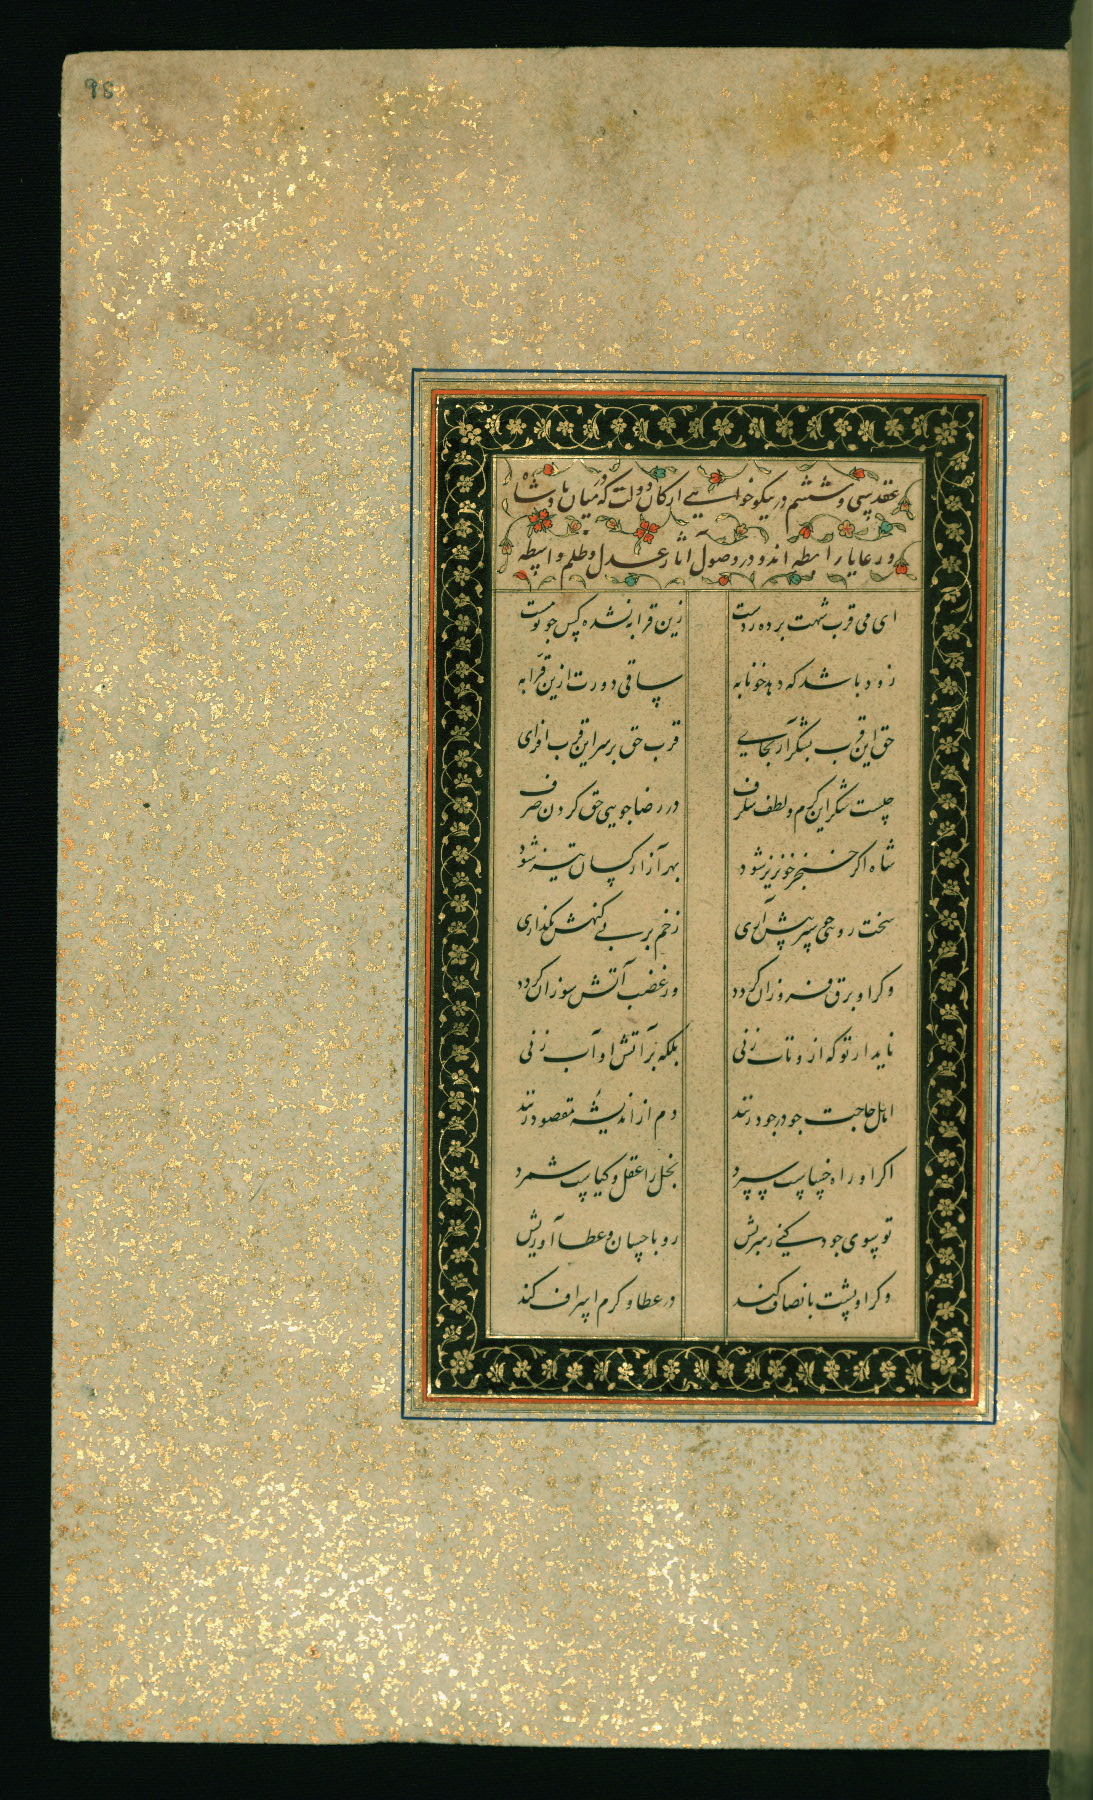 98
عقد سی و ششم در نیکوخواهی ارکان دولت که در میان پادشاه
و رعایا رابطه اند و در وصول آثار عدل و ظلم واسطه
ای می قرب شهت برده ز دست زین قرابه نشده کس چو تو مست
زود باشد که دهد خونابه ساقی دورت ازین قرابه
حق این قرب بشکر آر بجای قرب حق بر سر این قرب افزای
چیست شکر این کرم و لطف شکرف در رضاجویی حق کردن صرف
شاه اکر خنجر خونریز شود بهر آزار کسان تیز شود
سخت رویی سپر پیش آری زخم بر بی کنهش نکذاری
وکر او برق فروزان کردد ور غضب آتش سوزان کردد
ناید از تو که ازو تاب زنی بلکه بر آتش او آب زنی
اهل حاجت چو در جود زنند دم از اندیشه مقصود زنند
اکر او راه خساست سپرد بخل را عقل و کیاست شمرد
تو بسوی جود کنی رهبریش رو باحسان و عطا آوریش
وکر او پشت بانصاف کند در عطا و کرم اسراف کند